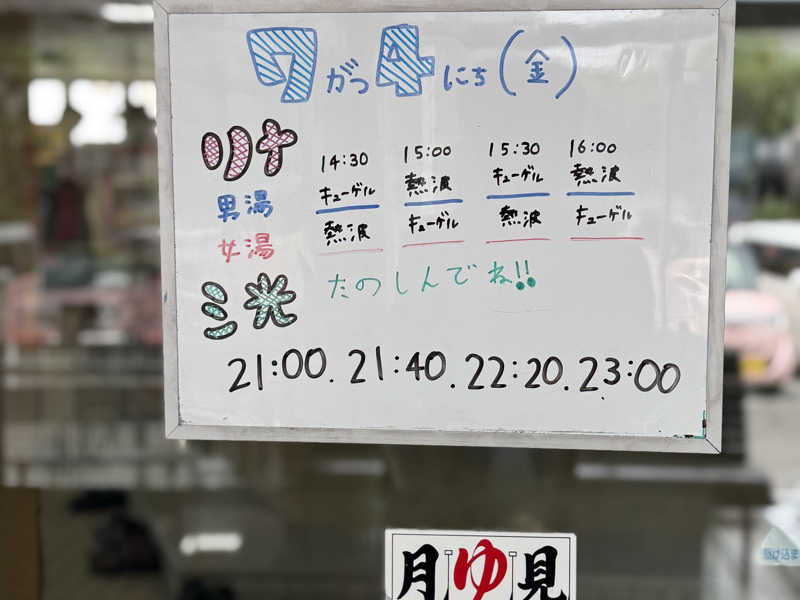 7がつ4にち(金)
リナ
14:30 15:00 15:30 16:00
男湯 キューゲル 熱波 キューゲル 熱波
女湯 熱波 キューゲル 熱波 キューゲル
三光 たのしんでね!!
21:00. 21:40. 22:20. 23:00
月ゆ見
駆け込ま